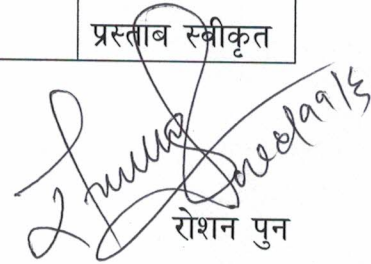 प्रस्ताब स्वीकृत
रोशन पुन